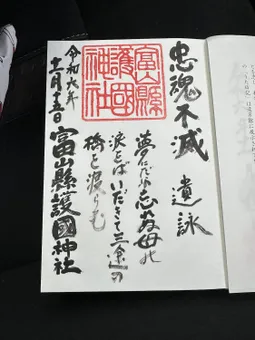 忠魂不滅
遺詠
夢にだに忘れぬ母の
涙をばいだきて三途の
橋を渡らむ
富山縣護國神社
富山縣護國神社
令和六年
十二月十五日